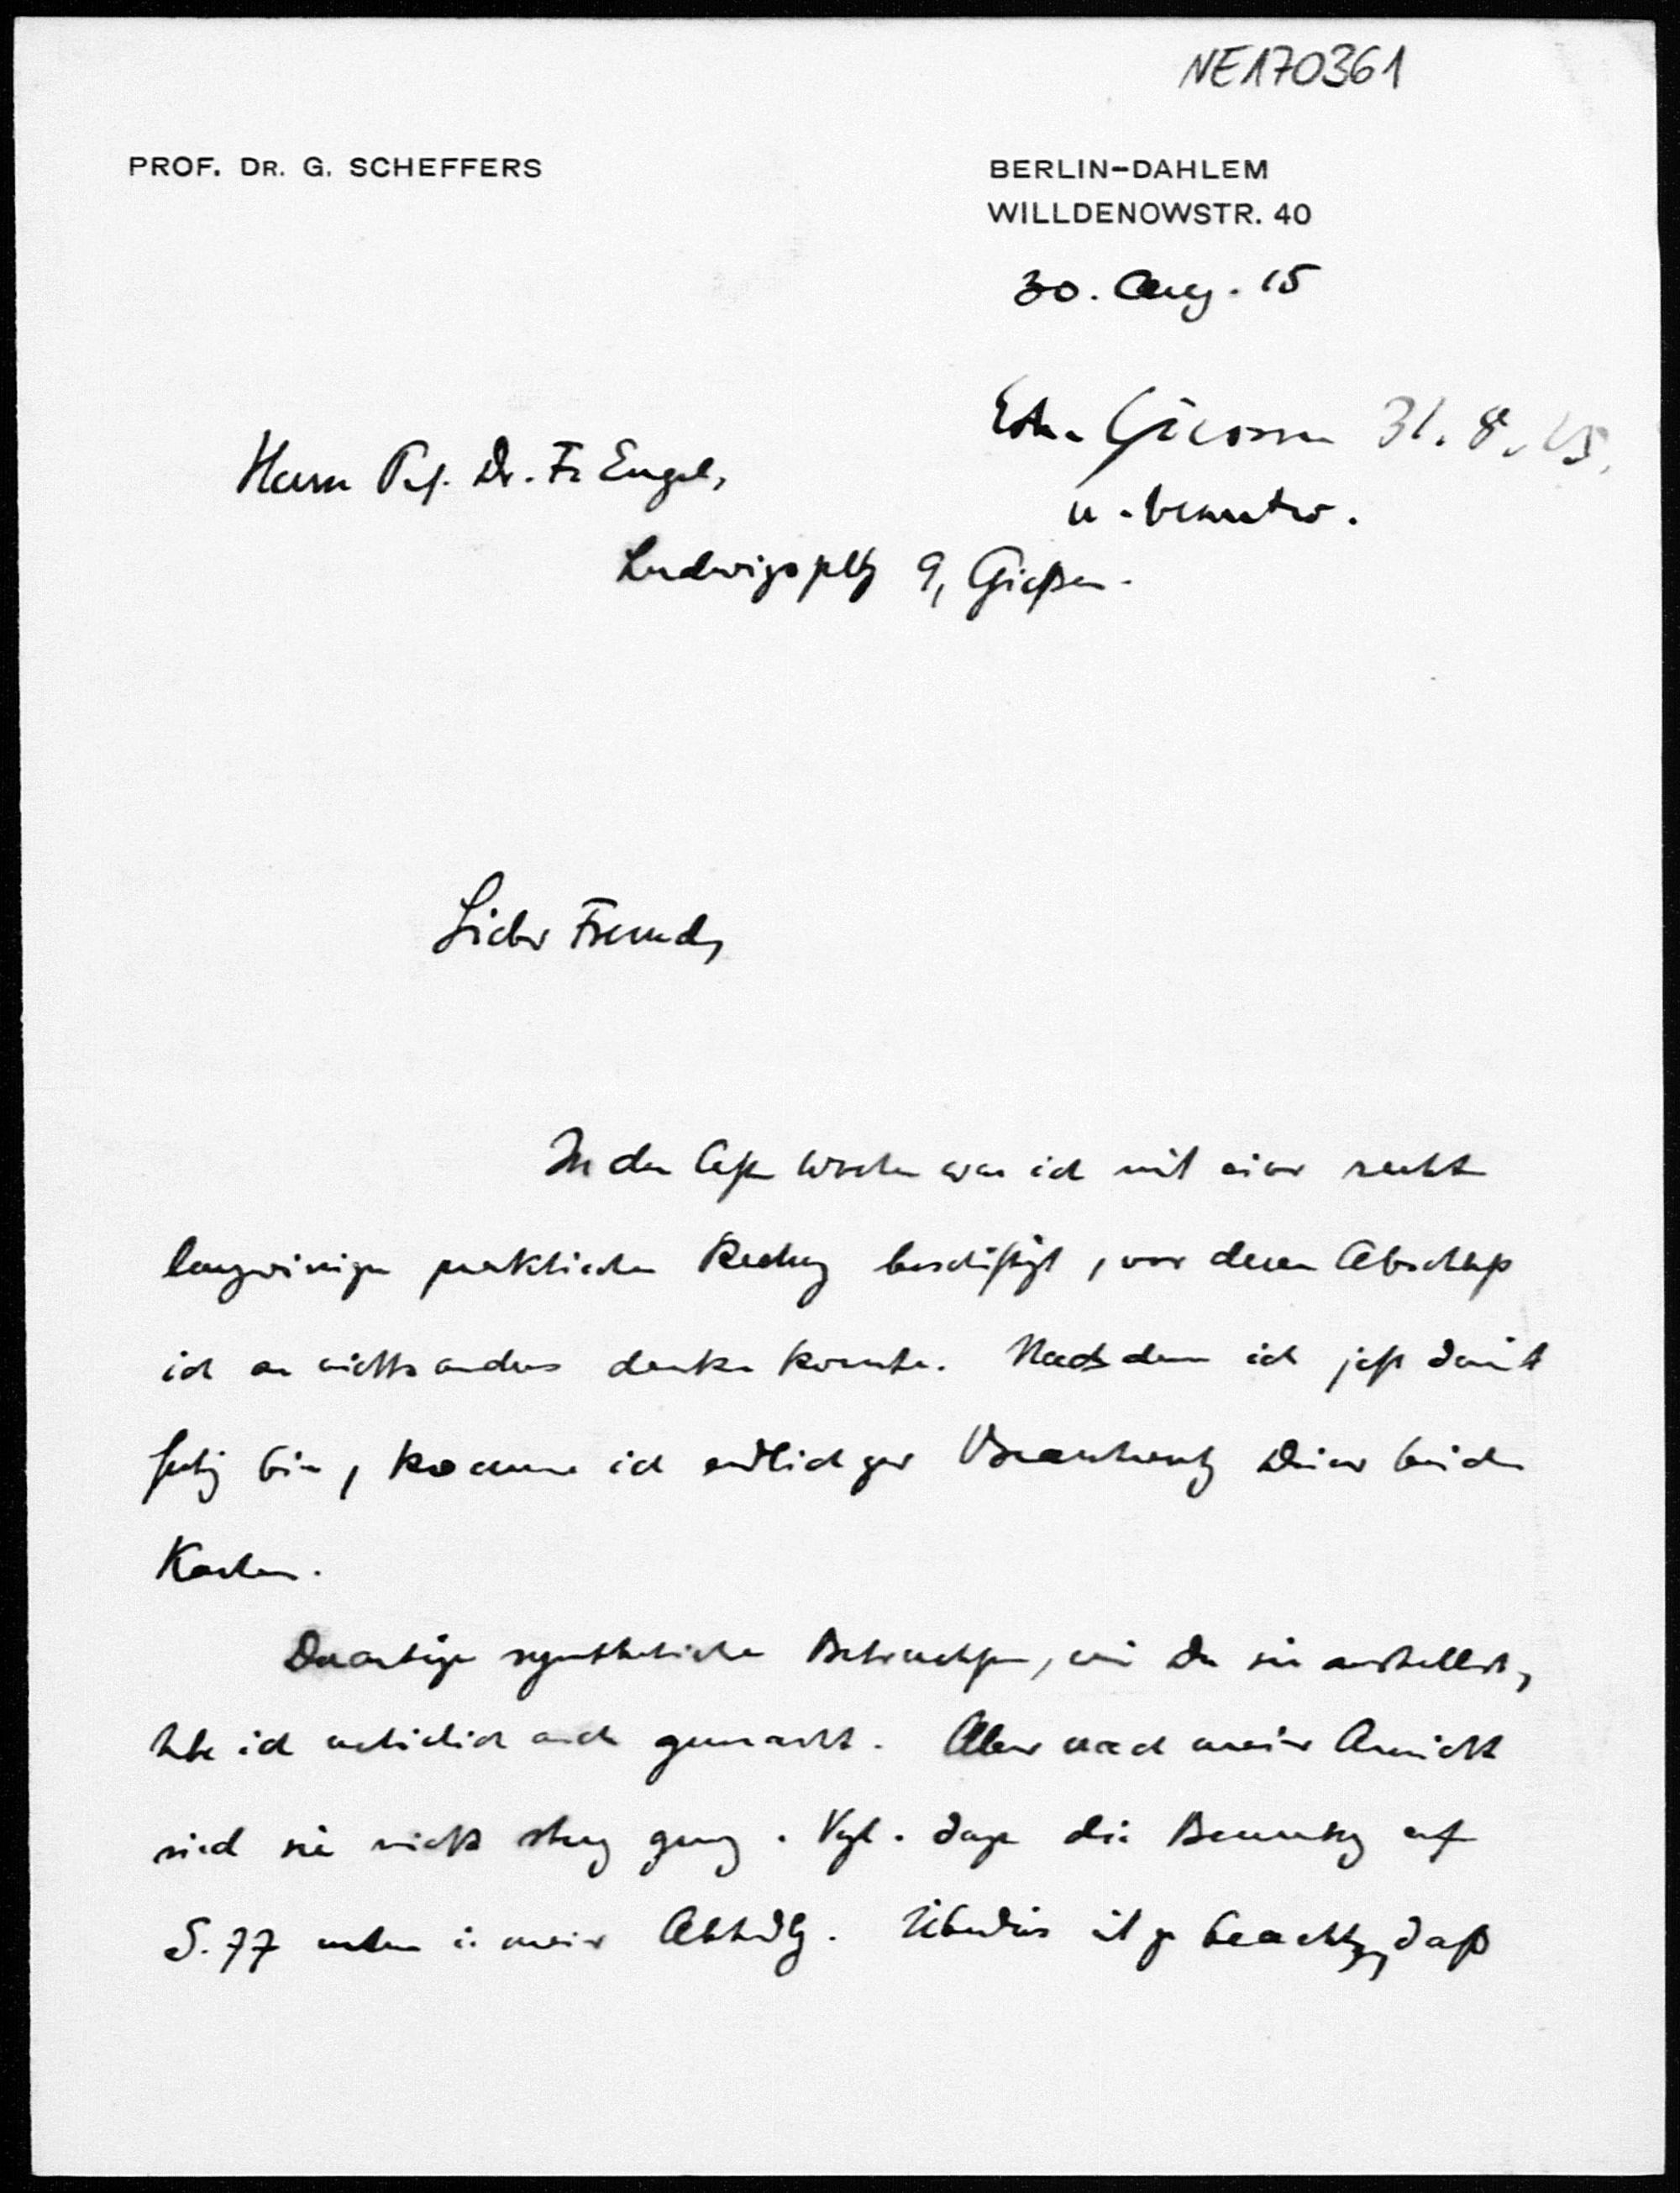 NE170361
PROF. DR. G. SCHEFFERS
BERLIN-DAHLEM
WILLDENOWSTR. 40
30. Aug. 15
Erh. Giessen 31. 8. 15.
u. beantw.
Herrn Prof. Dr. Fr. Engel,
Ludwigsplatz 9, Gießen.
Lieber Freund,
In den letzten Wochen war ich mit einer recht
langwierigen praktischen Rechnung beschäftigt, vor deren Abschluß
ich an nichts anderes denken konnte. Nachdem ich jetzt damit
fertig bin, komme ich endlich zur Beantwortung Deiner beiden
Karten.
Derartige synthetische Betrachtungen, wie Du sie anstellst,
habe ich natürlich auch gemacht. Aber nach meiner Ansicht
sind sie nicht streng genug. Vgl. dazu die Bemerkung auf
S. 77 unten in meiner Abhdlg. Überdies ist zu beachten, daß